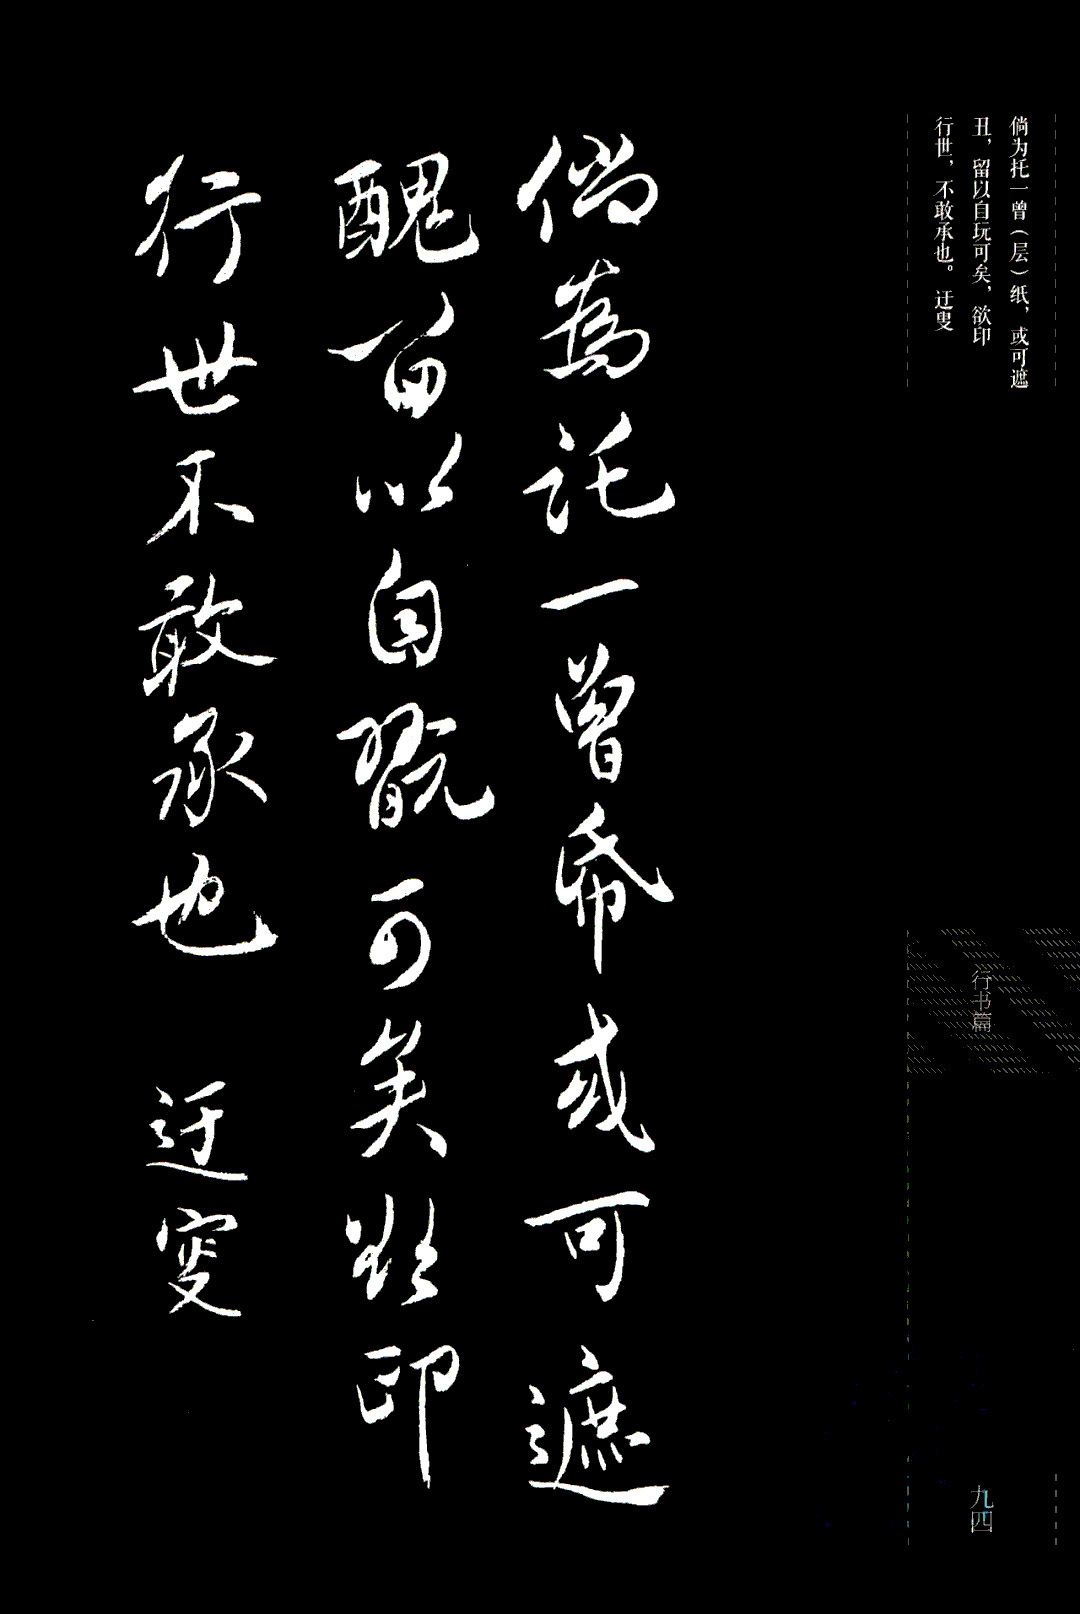 倘为托一曾（层）纸，或可遮
丑，留以自玩可矣，欲印
行世，不敢承也。 迂叟
倘為託一曾帋或可遮
醜留以自翫可矣欲印
行世不敢承也 迂叟
行书篇
九四